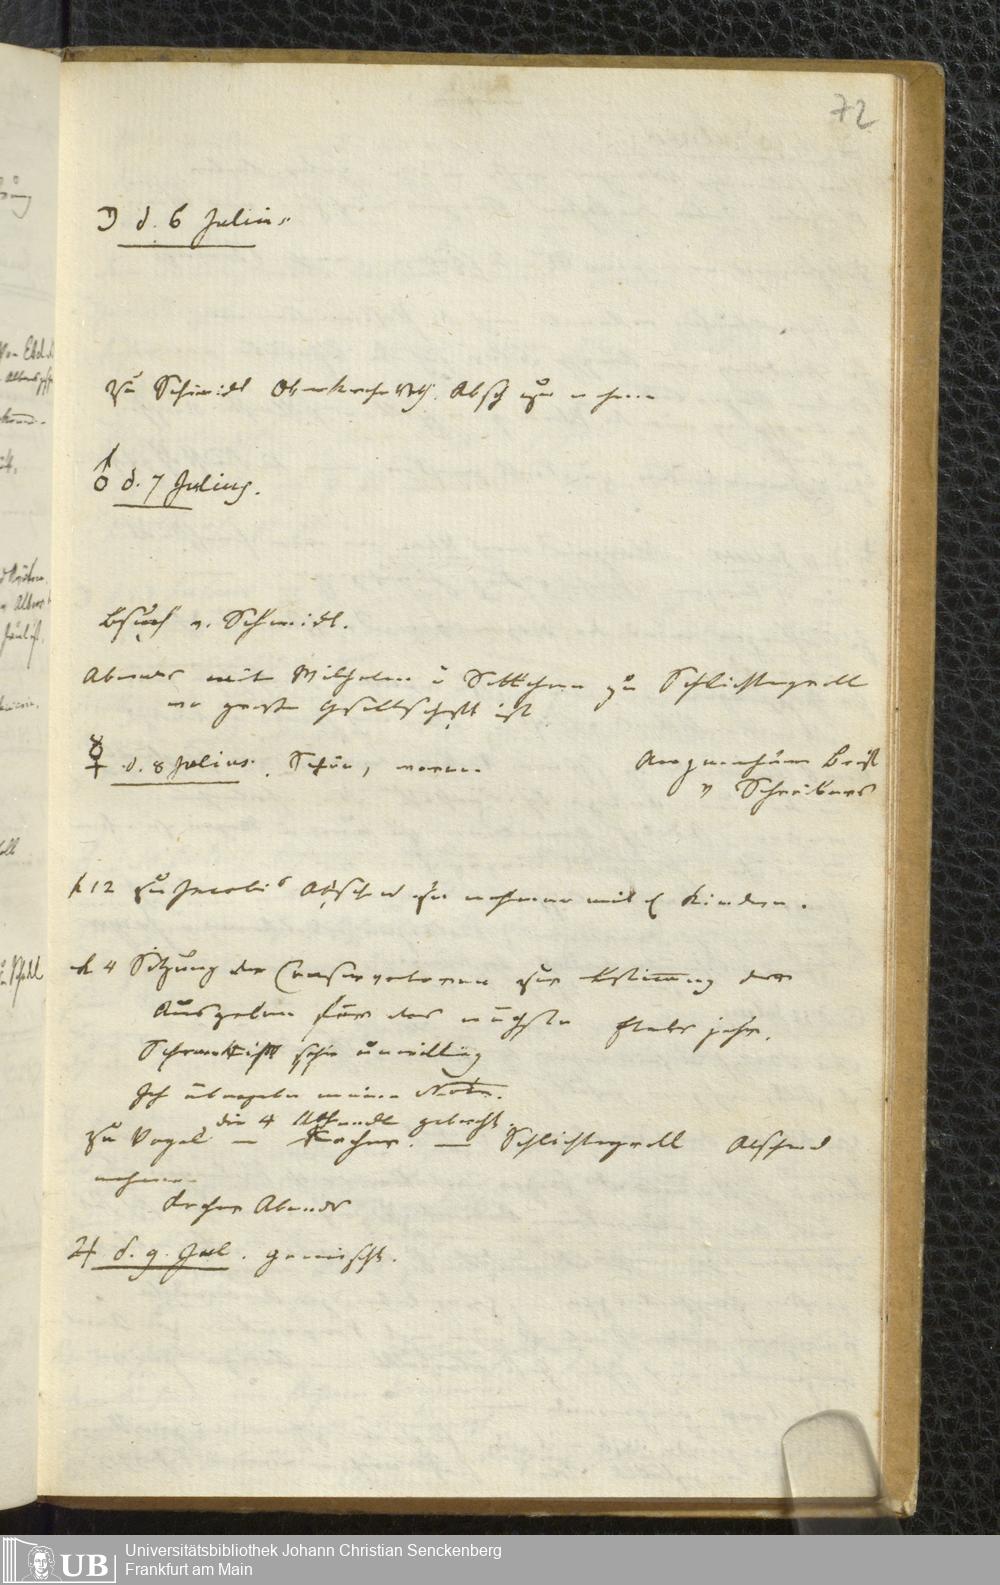 72
☽ d. 6 Julius.
zu Schmidt Oberkirchrth. Absch zu nehmen
♂ d. 7 Julius.
Besuch v. Schmidt.
Abends mit Wilhelm u Settchen zu Schlichtegroll
wo große Gesellschaft ist
☿ d. 8 Julius. Schön, warm.
Angenehmer Brief
v Schreibers
h 12 zu Jacobis Abschied zu nehmen mit d Kindern.
h 4 Sitzung der Conservatoren zur Bestimung der
Ausgaben für das nächste Etats jahr.
Schrank ist sehr unwillig
Ich übergebe meine Note.
die 4 Abhandl gebracht.
zu Vogel — — Schlichtegroll Abschied
nehmen
Abends
♃ d. 9. Jul. gemischt.
Universitätsbibliothek Johann Christian Senckenberg
Frankfurt am Main
UB